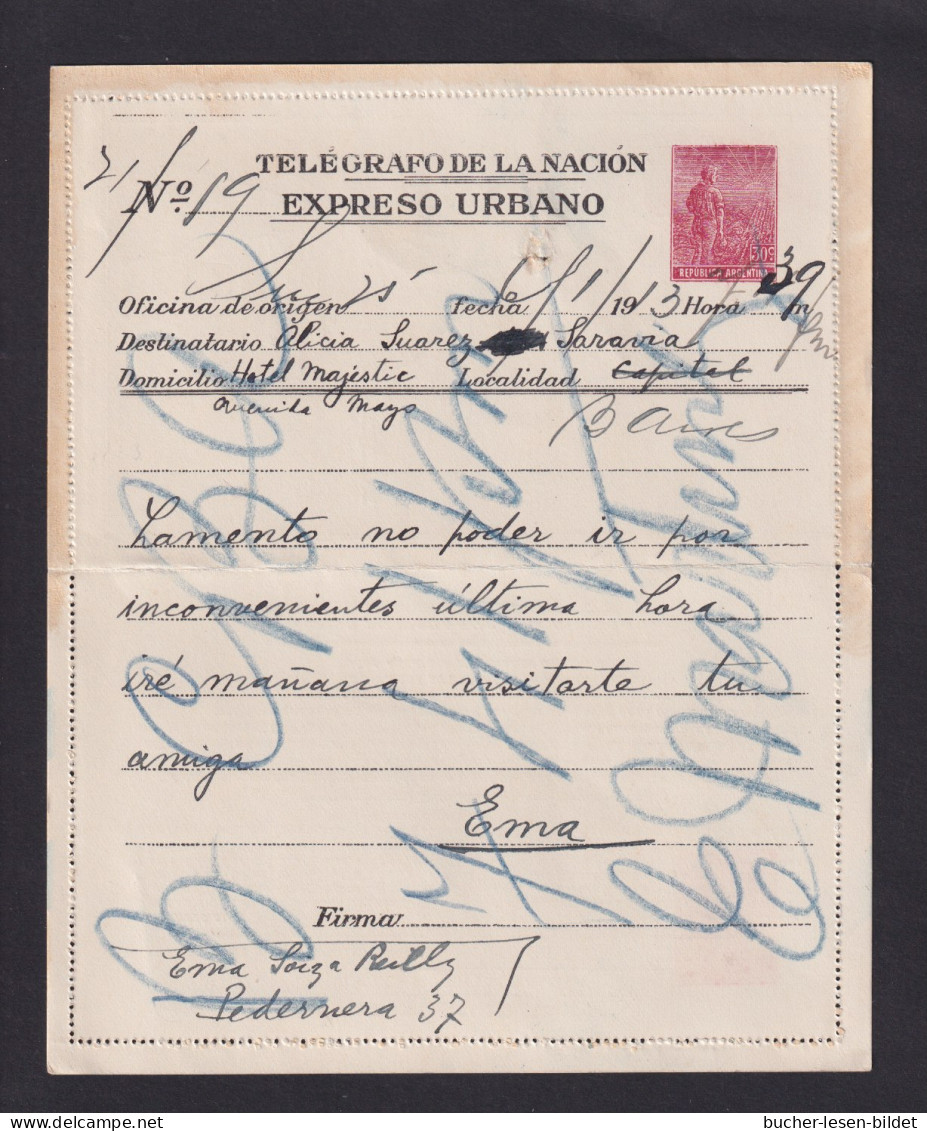 TELÉGRAFO DE LA NACIÓN
21/ Nº 19 EXPRESO URBANO
30c
REPÚBLICA ARGENTINA
Oficina de origen 25 fecha 1/1913 Hora 39 m
Destinatario Alicia Suarez Saravia
Domicilio Hotel Majestic Localidad Capital
Avenida Mayo B Aires
Lamento no poder ir por
inconvenientes última hora
iré mañana visitarte tu
amiga
Ema
Firma
Ema Soiza Reilly
Pedernera 37
bucher-lesen-bildet